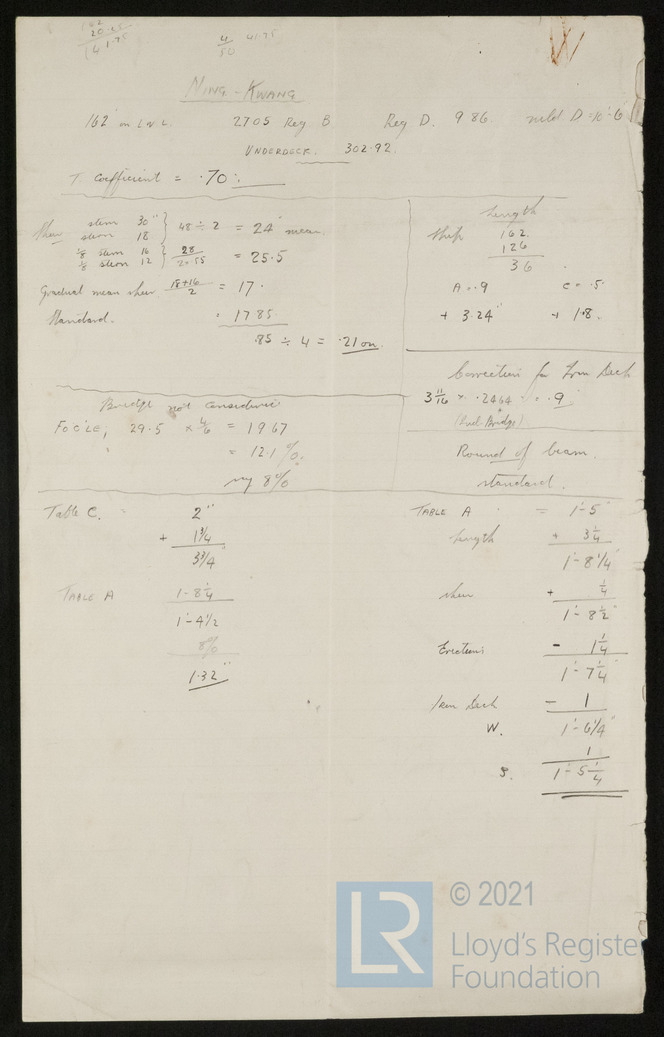 162
20.25
141.75
4/50 41.75
NING-KWANG
162' on L W L. 27.05 Reg B Reg D. 9.86 mld D = 10'-6"
UNDERDECK. 302.92
Coefficient = .70
Sheer stem 30" } 48 ÷ 2 = 24" mean.
stern 18
1/8 stem 16 } 28
1/8 stern 12 = 25.5
Gradual mean sheer 18+16/2 = 17.
Standard. = 17.85
.85 ÷ 4 = .21 on.
Length
Ship 162.
126
36
A = .9 C = .5
+ 3.24" + 1.8.
Correction for Iron Deck
3 11/16 × .2464 = .9
(Incl. Bridge)
Bridge not considered
FOC'LE, 29.5 × 4/6 = 19.67
" = 12.1%.
say 8%
Round of beam.
standard.
Table C. 2"
+ 1 3/4
3 3/4"
TABLE A 1-8 1/4
1'-4 1/2
8%
1.32"
TABLE A = 1'-5"
Length + 3 1/4
1'-8 1/4"
sheer + 1/4
1'-8 1/2"
Erections - 1 1/4
1'-7 1/4"
Iron Deck - 1
W. 1'-6 1/4"
1
S. 1'-5 1/4
© 2021
LR
Lloyd's Register
Foundation